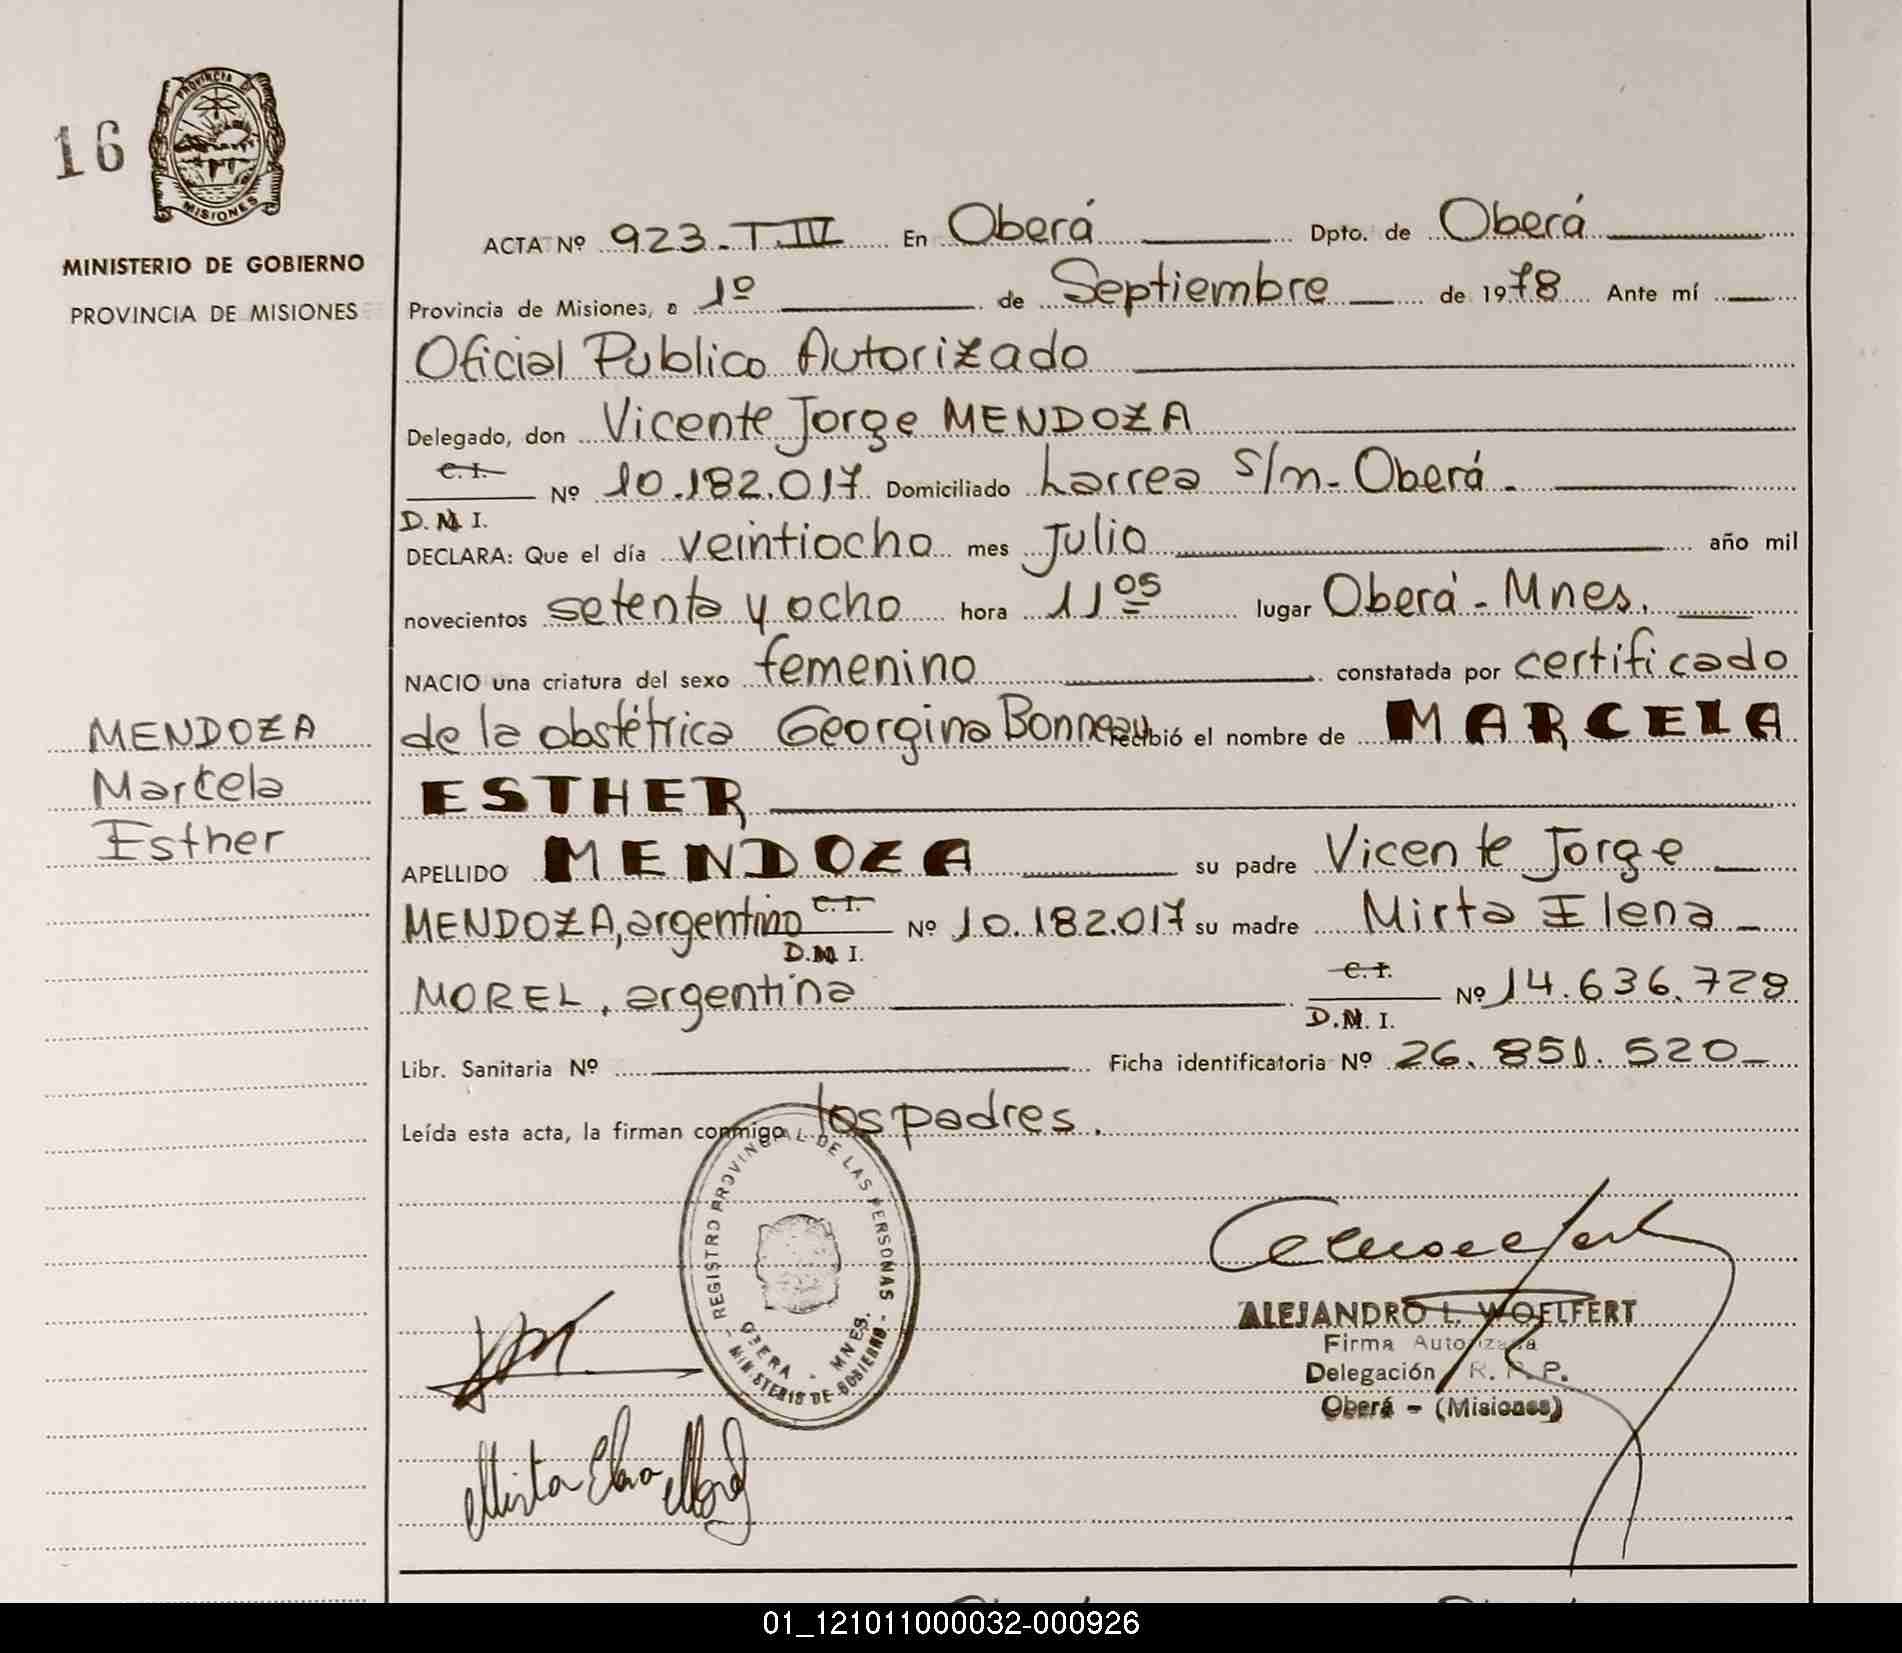 16
PROVINCIA DE
MISIONES
MINISTERIO DE GOBIERNO
PROVINCIA DE MISIONES
ACTA Nº 923-T.IV En Oberá Dpto. de Oberá
Provincia de Misiones, a 1º de Septiembre de 1978 Ante mí
Oficial Publico Autorizado
Delegado, don Vicente Jorge MENDOZA
C. I.
Nº 10.182.017 Domiciliado Larrea s/n- Oberá.
D. N. I.
DECLARA: Que el día veintiocho mes Julio año mil
novecientos setenta y ocho hora 11 05 lugar Oberá - Mnes.
NACIO una criatura del sexo femenino constatada por certificado
de la obstétrica Georgina Bonneau recibió el nombre de MARCELA
ESTHER
APELLIDO MENDOZA su padre Vicente Jorge
MENDOZA, argentino C. I. Nº 10.182.017 su madre Mirta Elena
D. N. I.
MOREL, argentina C. I. Nº 14.636.729
D. N. I.
Libr. Sanitaria Nº Ficha identificatoria Nº 26.851.520-
Leída esta acta, la firman conmigo los padres.
MENDOZA
Marcela
Esther
REGISTRO PROVINCIAL DE LAS PERSONAS
OBERA - MNES.
- MINISTERIO DE GOBIERNO -
Mirta Elena Morel
ALEJANDRO L. WOELFERT
Firma Autorizada
Delegación R. P. P.
Oberá - (Misiones)
01_121011000032-000926